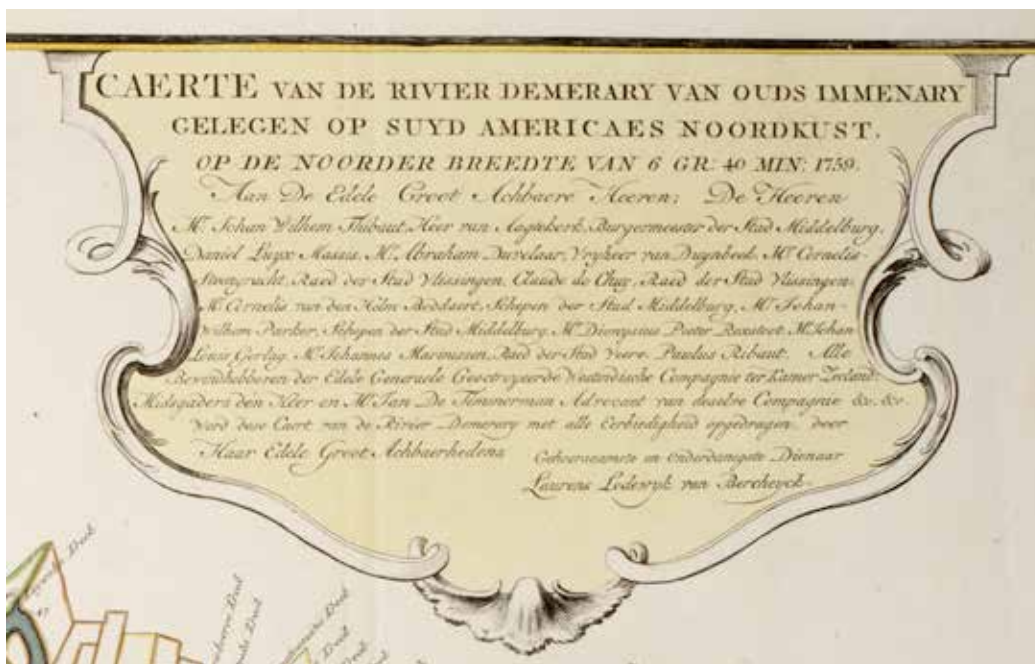 CAERTE VAN DE RIVIER DEMERARY VAN OUDS IMMENARY
GELEGEN OP SUYD AMERICAES NOORDKUST.
OP DE NOORDER BREEDTE VAN 6 GR: 40 MIN: 1759.
Aan De Edele Groot Achbaere Heeren; De Heeren
Mr. Johan Wilhem Thibaut, Heer van Aegtekerk, Burgermeester der Stad Middelburg,
Daniel Luyx Massis, Mr. Abraham Duvelaar, Vryheer van Duynbeek, Mr. Cornelis
Steengracht, Raed der Stad Vlissingen, Claude de Chuy, Raed der Stad Vlissingen,
Mr. Cornelis van den Helm Boddaert, Schepen der Stad Middelburg, Mr. Johan
Wilhem Parker, Schepen der Stad Middelburg, Mr. Dionysius Pieter Mr. Johan
Louis Gerlag, Mr. Johannes Marinissen, Raed der Stad Veere, Paulus Ribaut. Alle
Bewindhebberen der Edele Generaele Geoctroyeerde Westindische Compagnie ter Kamer Zeeland.
Midsgaders den Heer en Mr. Jan De Timmerman Advocaet van deselve Compagnie &c. &c.
Word dese Caert van de Rivier Demerary met alle Eerbiedigheid opgedragen, door
Haar Edele Groot Achbaerhedens
Gehoorzaemste en Onderdanigste Dienaar
Laurens Lodewyk van Bercheyck.
Deel
Deel
Deel
Deel
Deel